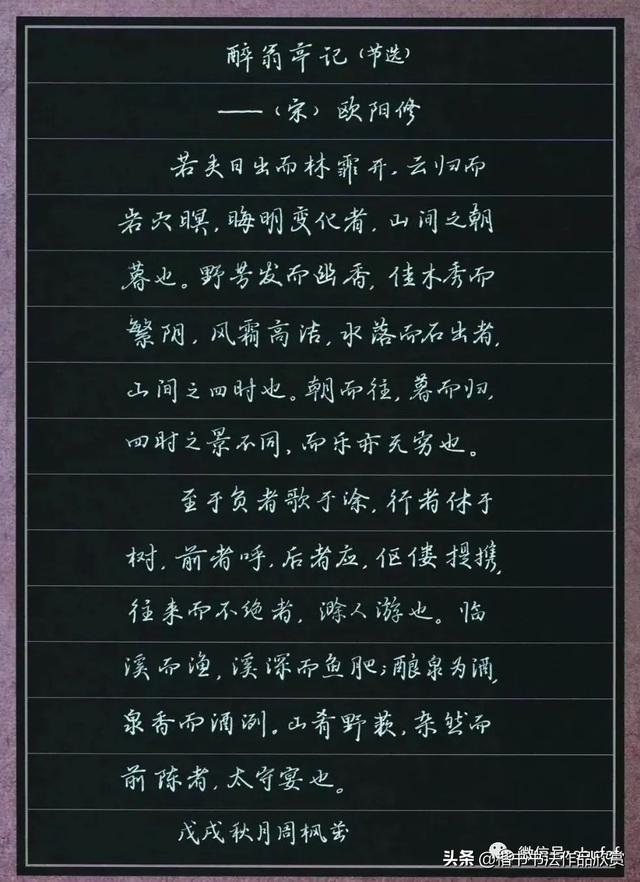 醉翁亭记(节选)
——(宋)欧阳修
若夫日出而林霏开,云归而
岩穴暝,晦明变化者,山间之朝
暮也。野芳发而幽香,佳木秀而
繁阴,风霜高洁,水落而石出者,
山间之四时也。朝而往,暮而归,
四时之景不同,而乐亦无穷也。
至于负者歌于涂,行者休于
树,前者呼,后者应,伛偻提携,
往来而不绝者,滁人游也。临
溪而渔,溪深而鱼肥;酿泉为酒,
泉香而酒洌。山肴野蔌,杂然而
前陈者,太守宴也。
戊戌秋月周枫
微信号
头条@楷书书法作品欣赏